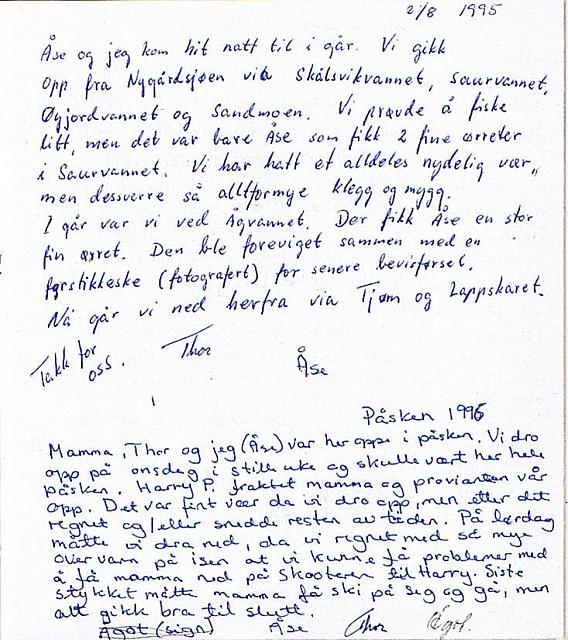 2/8 1995
Åse og jeg kom hit natt til i går. Vi gikk
opp fra Nygårdsjøen via Skålsvikvannet, Saurvannet,
Øyjordvannet og Sandmoen. Vi prøvde å fiske
litt, men det var bare Åse som fikk 2 fine ørreter
i Saurvannet. Vi har hatt et alldeles nydelig vær,
men dessverre så altformye klegg og mygg.
I går var vi ved Ågvannet. Der fikk Åse en stor
fin ørret. Den ble foreviget sammen med en
fyrstikkeske (fotografert) for senere bevisførsel.
Nå går vi ned herfra via Tjøm og Lappskaret.
Takk for
oss.
Thor
Åse
Påsken 1996
Mamma, Thor og jeg (Åse) var her oppe i påsken. Vi dro
opp på onsdag i stille uke og skulle vært her hele
påsken. Harry P. fraktet mamma og provianten vår
opp. Det var fint vær da vi dro opp, men etter det
regnet og/eller snødde resten av tiden. På lørdag
måtte vi dra ned, da vi regnet med så mye
overvann på isen at vi kunne få problemer med
å få mamma ned på skooteren til Harry. Siste
stykket måtte mamma få ski på seg og gå, men
alt gikk bra til slutt.
Ågot (sign) Åse Thor Ågot.